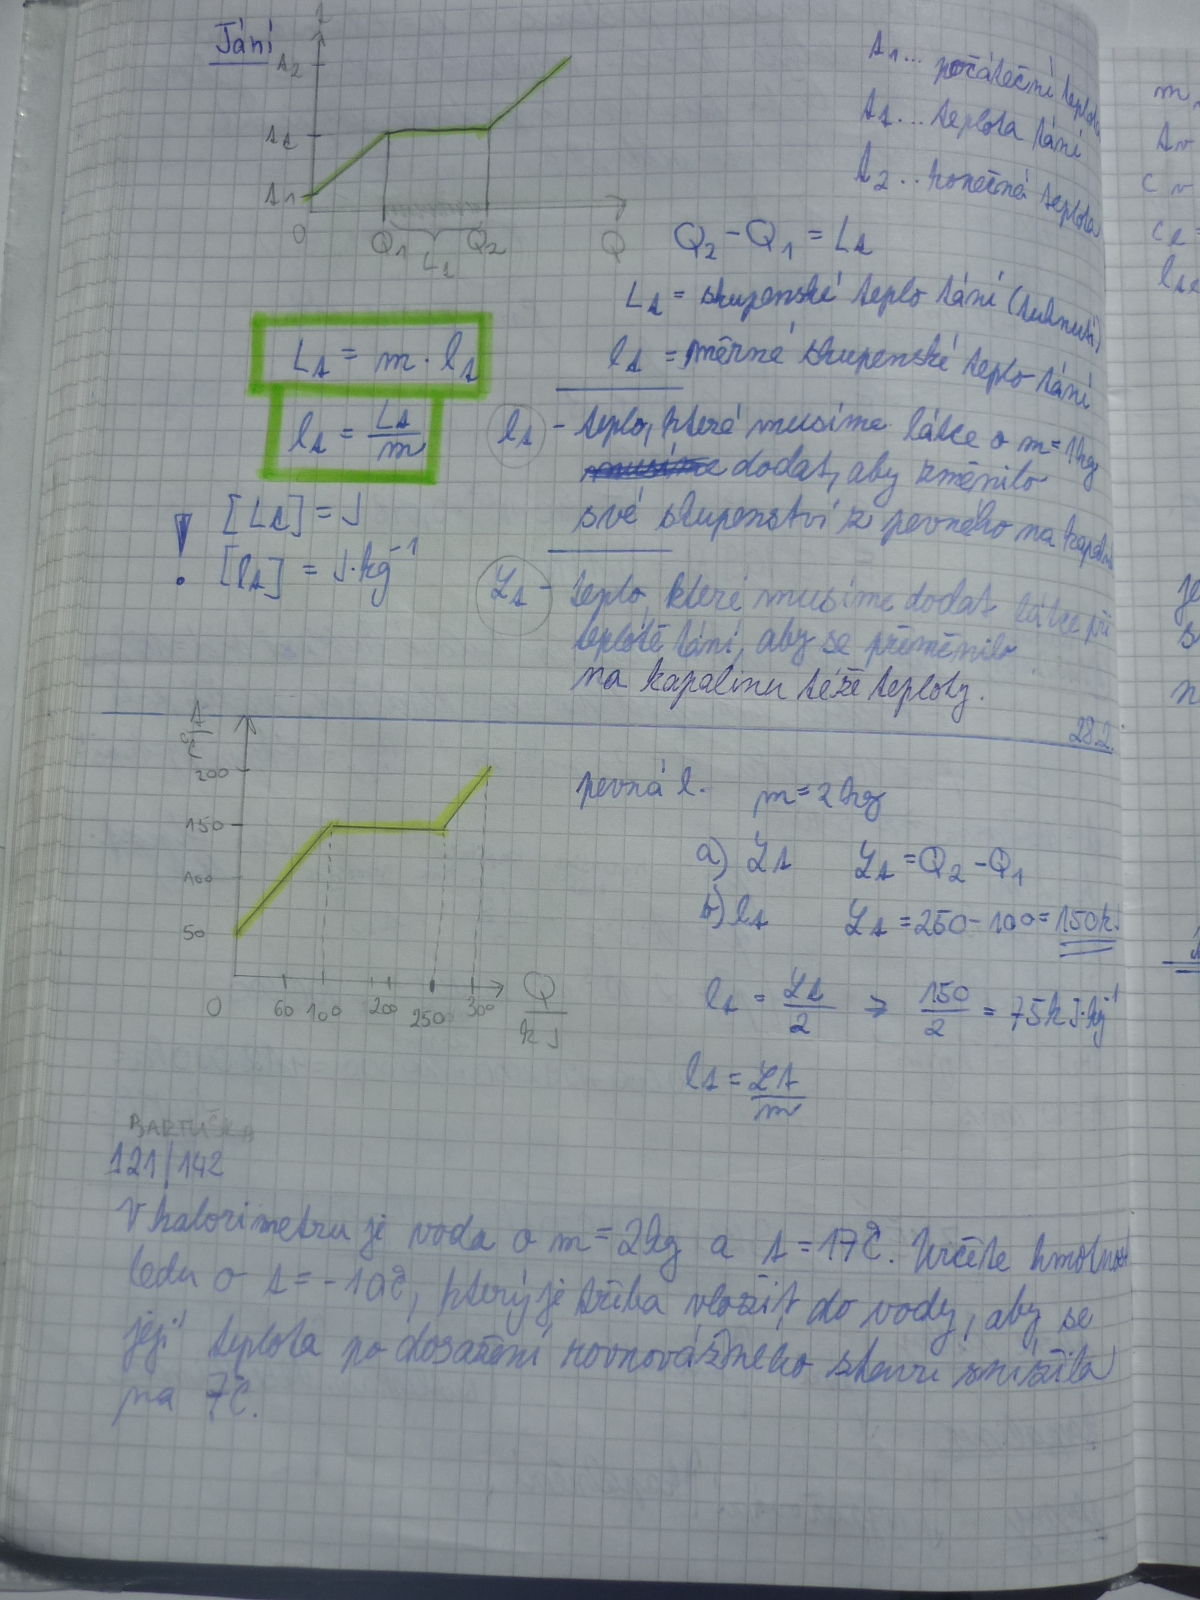 Tání
t2
tt
t1
0
Q1
Q2
Lt
Q
t1... počáteční teplota
tt... teplota tání
t2.. konečná teplota
Q2 - Q1 = Lt
Lt = skupenské teplo tání (tuhnutí)
Lt = m · lt
lt = měrné skupenské teplo tání
lt = Lt/m
lt - teplo, které musíme látce o m = 1kg
dodat, aby změnilo
své skupenství z pevného na kapalné
! [Lt] = J
[lt] = J·kg⁻¹
Lt - teplo, které musíme dodat látce při
teplotě tání, aby se přeměnila
na kapalinu téže teploty.
28.2.
t/°C
200
150
100
50
0
60 100 200 250 300
Q/kJ
pevná l. m = 2kg
a) Lt Lt = Q2 - Q1
b) lt Lt = 250 - 100 = 150k
lt = Lt/2 → 150/2 = 75kJ·kg⁻¹
lt = Lt/m
BARTUŠKA
121/142
V kalorimetru je voda o m = 2kg a t = 17°C. Určete hmotnost
ledu o t = -10°C, který je třeba vložit do vody, aby se
její teplota po dosažení rovnovážného stavu snížila
na 7°C.
m
tv
cv
cl =